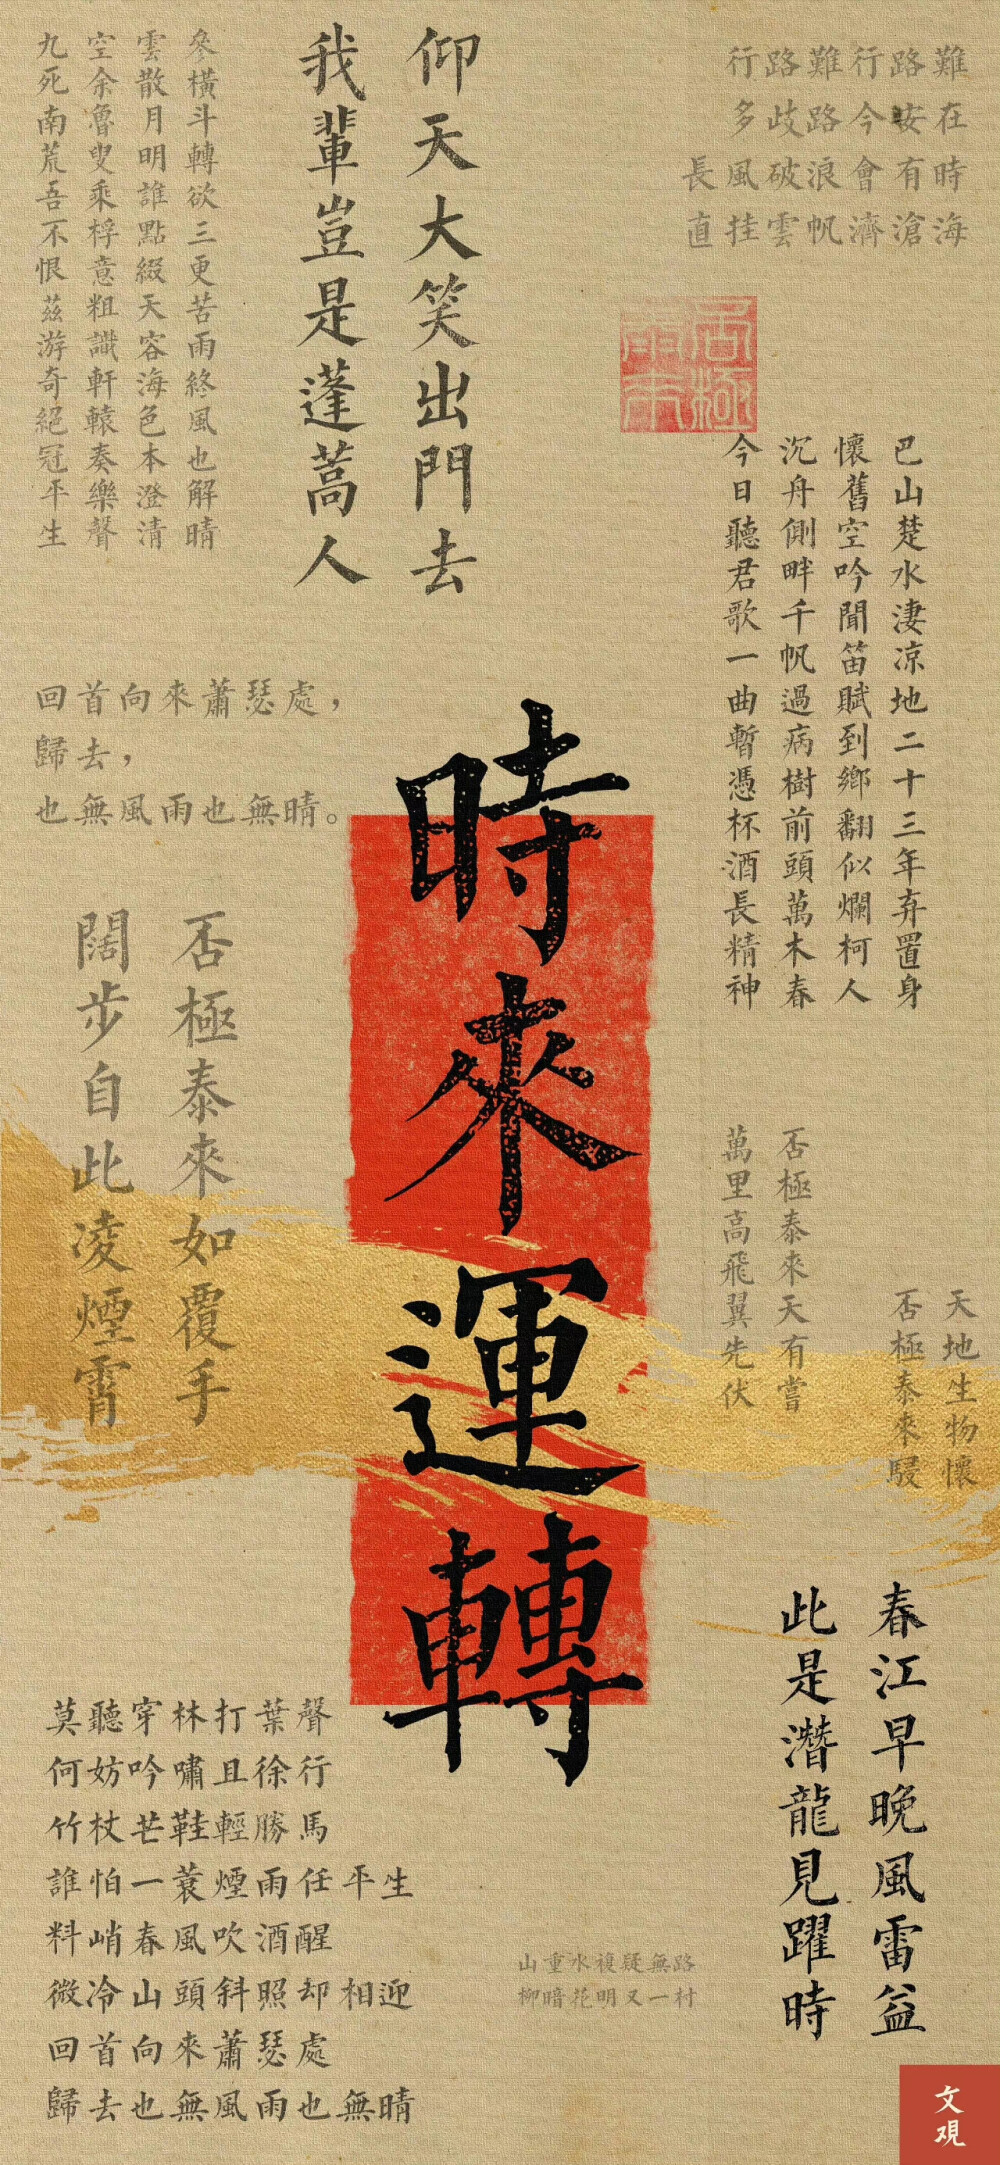 難路行難路行
在安今路歧多
時有會浪破風長
海滄濟帆雲挂直
仰天大笑出門去
我輩豈是蓬蒿人
參橫斗轉欲三更苦雨終風也解晴
雲散月明誰點綴天容海色本澄清
空余魯叟乘桴意粗識軒轅奏樂聲
九死南荒吾不恨茲游奇絕冠平生
否極
泰來
巴山楚水淒凉地二十三年弃置身
懷舊空吟聞笛賦到鄉翻似爛柯人
沉舟側畔千帆過病樹前頭萬木春
今日聽君歌一曲暫憑杯酒長精神
回首向來蕭瑟處，
歸去，
也無風雨也無晴。
時來運轉
否極泰來如覆手
闊步自此凌煙霄
否極泰來天有嘗
萬里高飛翼先伏
天地生物懷
否極泰來駸
春江早晚風雷益
此是潛龍見躍時
莫聽穿林打葉聲
何妨吟嘯且徐行
竹杖芒鞋輕勝馬
誰怕一蓑煙雨任平生
料峭春風吹酒醒
微冷山頭斜照却相迎
回首向來蕭瑟處
歸去也無風雨也無晴
山重水複疑無路
柳暗花明又一村
文观